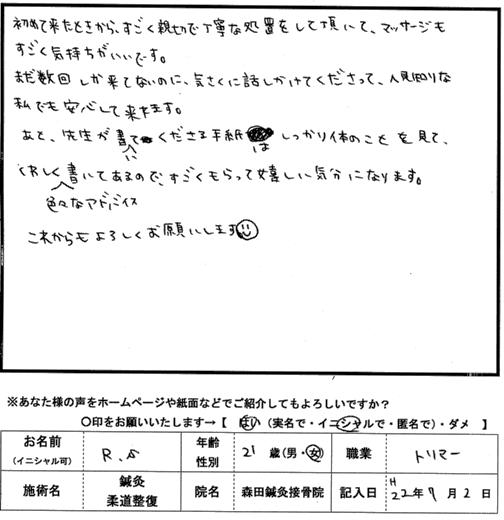 初めて来たときから、すごく親切で丁寧な処置をして頂いて、マッサージも
すごく気持ちがいいです。
まだ数回しか来てないのに、気さくに話しかけてくださって、人見知りな
私でも安心して来れます。
あと、先生が書てくださる手紙はしっかり体のことを見て、
に
くわしく書いてあるので、すごくもらって嬉しい気分になります。
色々なアドバイス
これからもよろしくお願いします
※あなた様の声をホームページや紙面などでご紹介してもよろしいですか？
〇印をお願いいたします→【 はい（実名で・イニシャルで・匿名で）・ダメ 】
お名前
（イニシャル可）
R.
年齢
性別
21 歳（男・女）
職業
トリマー
施術名
鍼灸
柔道整復
院名
森田鍼灸接骨院
記入日
H22年7月2日